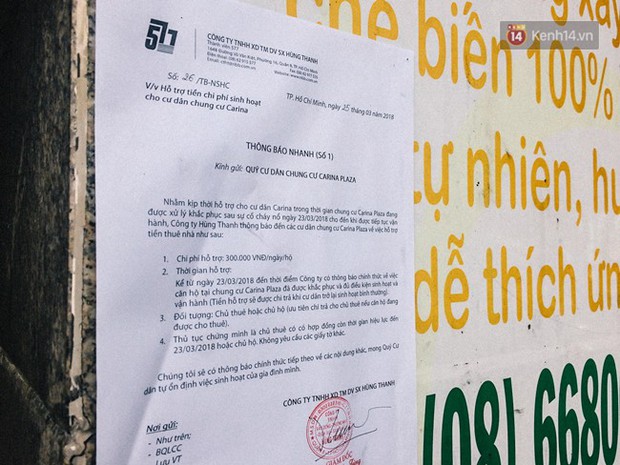 577
CÔNG TY TNHH XD TM DV SX HÙNG THANH
Thành viên 577
Số: 26/TB-NSHC
V/v Hỗ trợ tiền chi phí sinh hoạt
cho cư dân chung cư Carina
TP. Hồ Chí Minh, ngày 25 tháng 03 năm 2018
THÔNG BÁO NHANH (Số 1)
Kính gửi: QUÝ CƯ DÂN CHUNG CƯ CARINA PLAZA
Nhằm kịp thời hỗ trợ cho cư dân Carina trong thời gian chung cư Carina Plaza đang
được xử lý khắc phục sau sự cố cháy nổ ngày 23/03/2018 cho đến khi được tiếp tục vận
hành, Công ty Hùng Thanh thông báo đến các cư dân chung cư Carina Plaza về việc hỗ trợ
tiền thuê nhà như sau:
1. Chi phí hỗ trợ: 300.000 VNĐ/ngày/hộ
2. Thời gian hỗ trợ:
Kể từ ngày 23/03/2018 đến thời điểm Công ty có thông báo chính thức về việc
căn hộ tại chung cư Carina Plaza đã được khắc phục và đủ điều kiện sinh hoạt và
vận hành (Tiền hỗ trợ sẽ được chi trả khi cư dân trở lại sinh hoạt bình thường).
3. Đối tượng: Chủ thuê hoặc chủ hộ (ưu tiên chi trả cho chủ thuê nếu căn hộ đang
được cho thuê).
4. Thủ tục chứng minh là chủ thuê có hợp đồng còn thời gian hiệu lực đến
23/03/2018 hoặc chủ hộ. Không yêu cầu các giấy tờ khác.
Chúng tôi sẽ có thông báo chính thức tiếp theo về các nội dung khác, mong Quý Cư
dân tự ổn định việc sinh hoạt của gia đình mình.
CÔNG TY TNHH XD TM DV SX HÙNG THANH
Nơi gửi:
- Như trên;
- BQLCC
- Lưu VT
GIÁM ĐỐC
14 Kenh14.vn
chế biến 100%
tự nhiên, hư
dễ thích ứn
(08) 6680